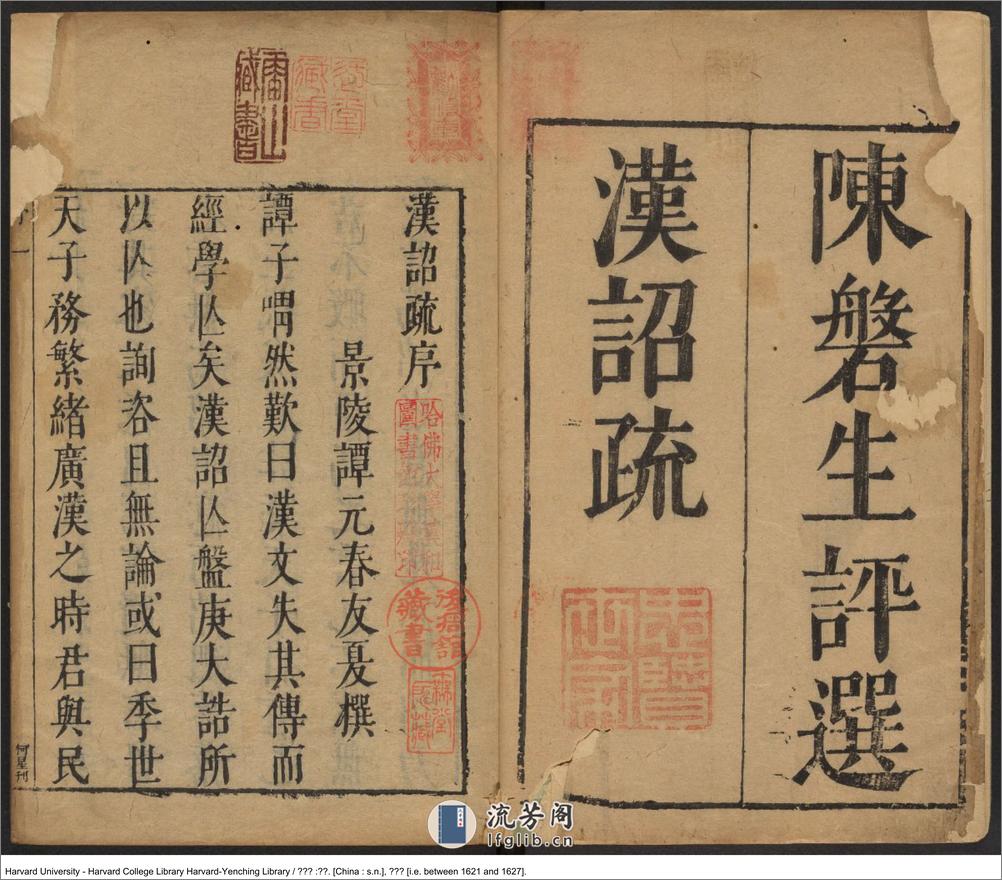 陳磐生評選
漢詔疏
哈佛大學漢和圖書館珍藏印
漢詔疏序
景陵譚元春友夏撰
譚子喟然歎曰漢文失其傳而
經學亾矣漢詔亾盤庚大誥所
以亾也詢咨且無論或曰季世
天子務繁緒廣漢之時君與民
一
何星刊
流芳阁
lfglib.cn
Harvard University - Harvard College Library Harvard-Yenching Library / ??? :??. [China : s.n.], ??? [i.e. between 1621 and 1627].